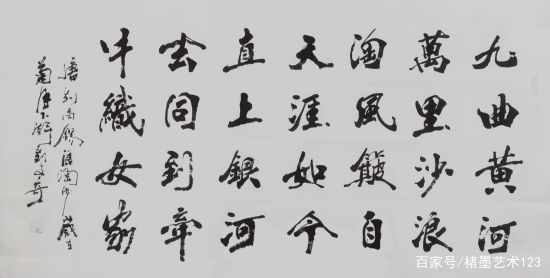 九曲黄河
萬里沙浪
淘風簸自
天涯如今
直上銀河
去同到牽
牛織女家
唐劉禹錫浪淘沙
百家号/楮墨艺术123